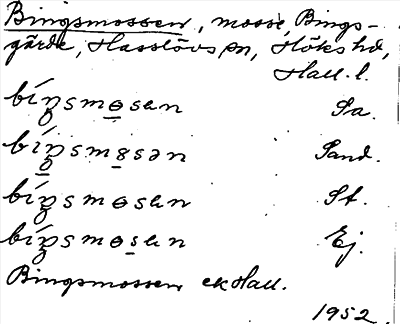 Bingsmossen, mosse, Bings-
gärde, Hasslövs sn, Höks hd,
Hall. l.
bíŋsmɵsən Sa.
bíŋsmɵsən Sand.
bíŋsmɵsən St.
bíŋsmɵsən Ej.
Bingsmossen ek Hall.
1952.